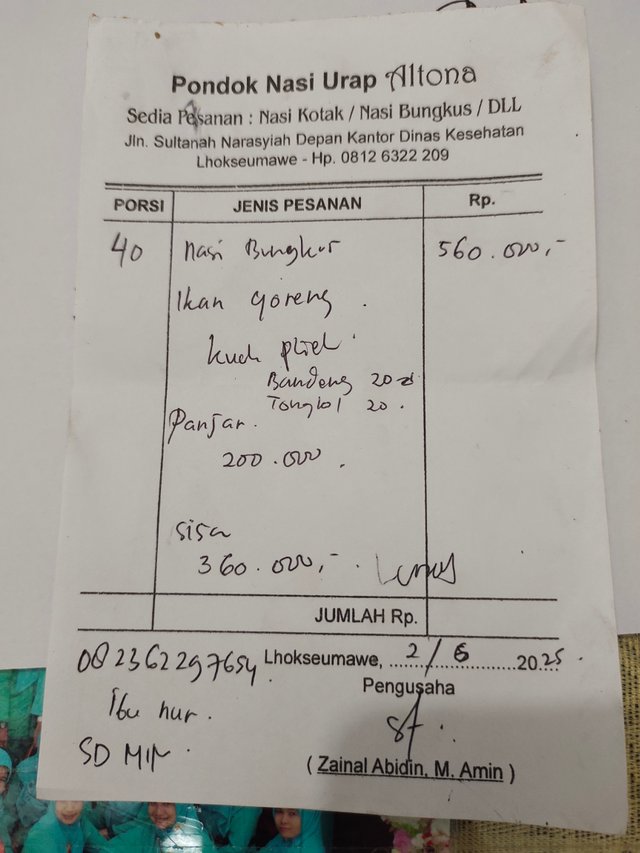 Pondok Nasi Urap Altona
Sedia Pesanan : Nasi Kotak / Nasi Bungkus / DLL
Jln. Sultanah Narasyiah Depan Kantor Dinas Kesehatan
Lhokseumawe - Hp. 0812 6322 209
PORSI JENIS PESANAN Rp.
40 Nasi Bungkus 560.000,-
Ikan goreng .
kuah pliek
Bandeng 20
Tongkol 20.
Panjar.
200.000.
sisa
360.000,-. Lunas
JUMLAH Rp.
082362297654. Lhokseumawe, 2/6 2025.
Ibu nur. Pengusaha
SD MIN.
( Zainal Abidin, M. Amin )